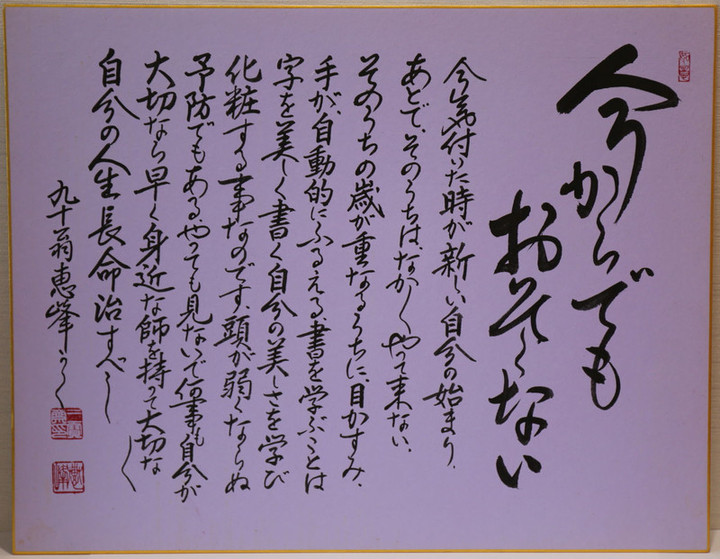 今からでも
おそくない
今気付いた時が新しい自分の始まり、
あとで、そのうちは、なか〱やって来ない、
そのうちの歳が重なるうちに、目かすみ、
手が、自動的にふるえる、書を学ぶことは
字を美しく書く自分の美しさを学び
化粧する事なのです、頭が弱くならぬ
予防でもあるやっても見ないで何事も自分が
大切なら早く身近な師を持って大切な
自分の人生長命治すべし
九十翁恵峰かく